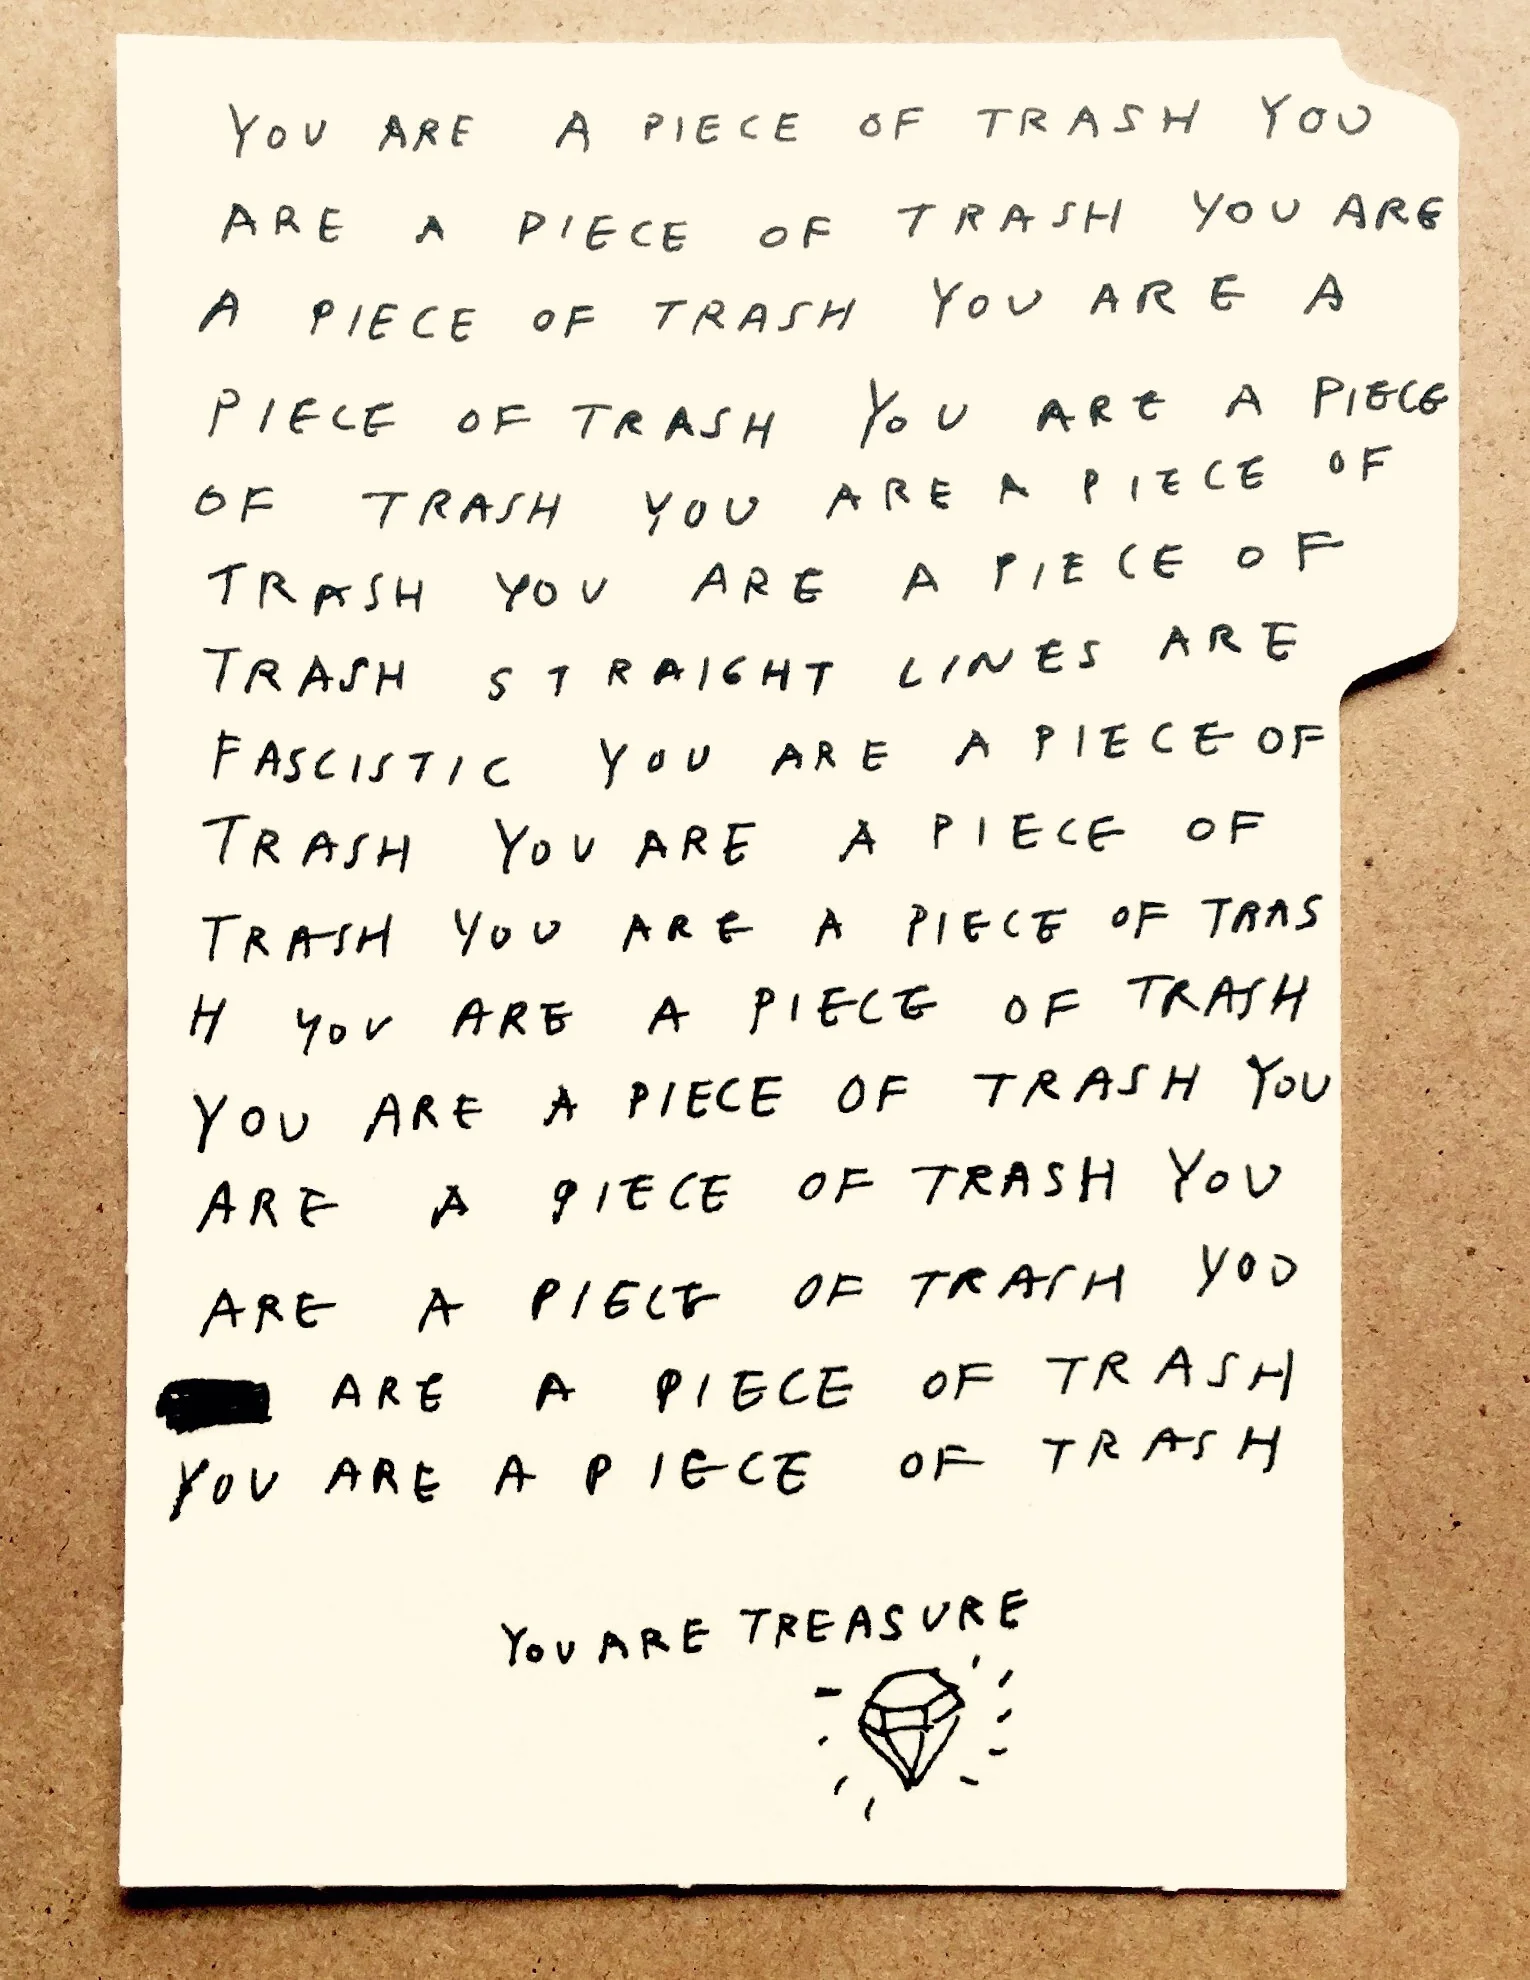 YOU ARE A PIECE OF TRASH YOU
ARE A PIECE OF TRASH YOU ARE
A PIECE OF TRASH YOU ARE A
PIECE OF TRASH YOU ARE A PIECE
OF TRASH YOU ARE A PIECE OF
TRASH YOU ARE A PIECE OF
TRASH STRAIGHT LINES ARE
FASCISTIC YOU ARE A PIECE OF
TRASH YOU ARE A PIECE OF
TRASH YOU ARE A PIECE OF TRAS
H YOU ARE A PIECE OF TRASH
YOU ARE A PIECE OF TRASH YOU
ARE A PIECE OF TRASH YOU
ARE A PIECE OF TRASH YOU
ARE A PIECE OF TRASH
YOU ARE A PIECE OF TRASH
YOU ARE TREASURE